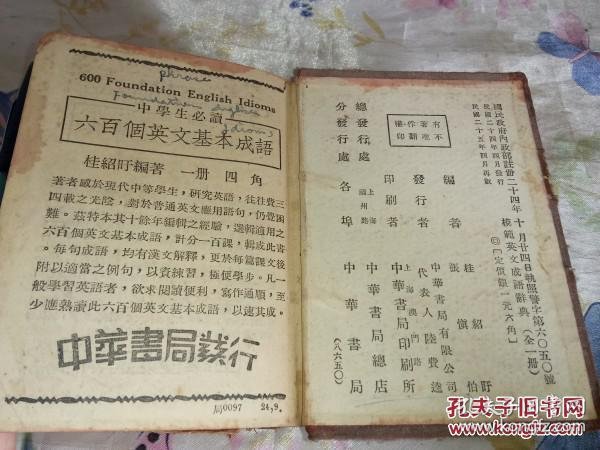 600 Foundation English Idioms
phrase
Foundation English
Idioms
中學生必讀
六百個英文基本成語
桂紹盱編著 一册 四角
著者感於現代中等學生，研究英語，往往費三
四載之光陰，對於普通英文應用語句，仍覺困
難。茲特本其十餘年編輯之經驗，選輯適用之
六百個英文基本成語，計分一百課，輯成此書
。每句成語，均有漢文解釋，更於每篇課文後
附以適當之例句，以資練習，極便學步。凡一
般學習英語者，欲求閱讀便利，寫作通順，至
少應熟讀此六百個英文基本成語，以速其成。
中華書局發行
局0097 24,9.
國民政府內政部註冊二十四年十月廿四日執照警字第六〇五〇號
民國二十四年四月發行
民國二十五年四月再版
模範英文成語辭典（全一冊）
◎〔定價銀一元六角〕
有著作權 不准翻印
編著者 桂紹盱 張慎伯
發行者 中華書局有限公司 代表人 陸費逵
印刷者 上海澳門路 中華書局印刷所
總發行處 上海福州路 中華書局總店
分發行處 各埠 中華書局
（八六五〇）
孔夫子旧书网
www.kongfz.com